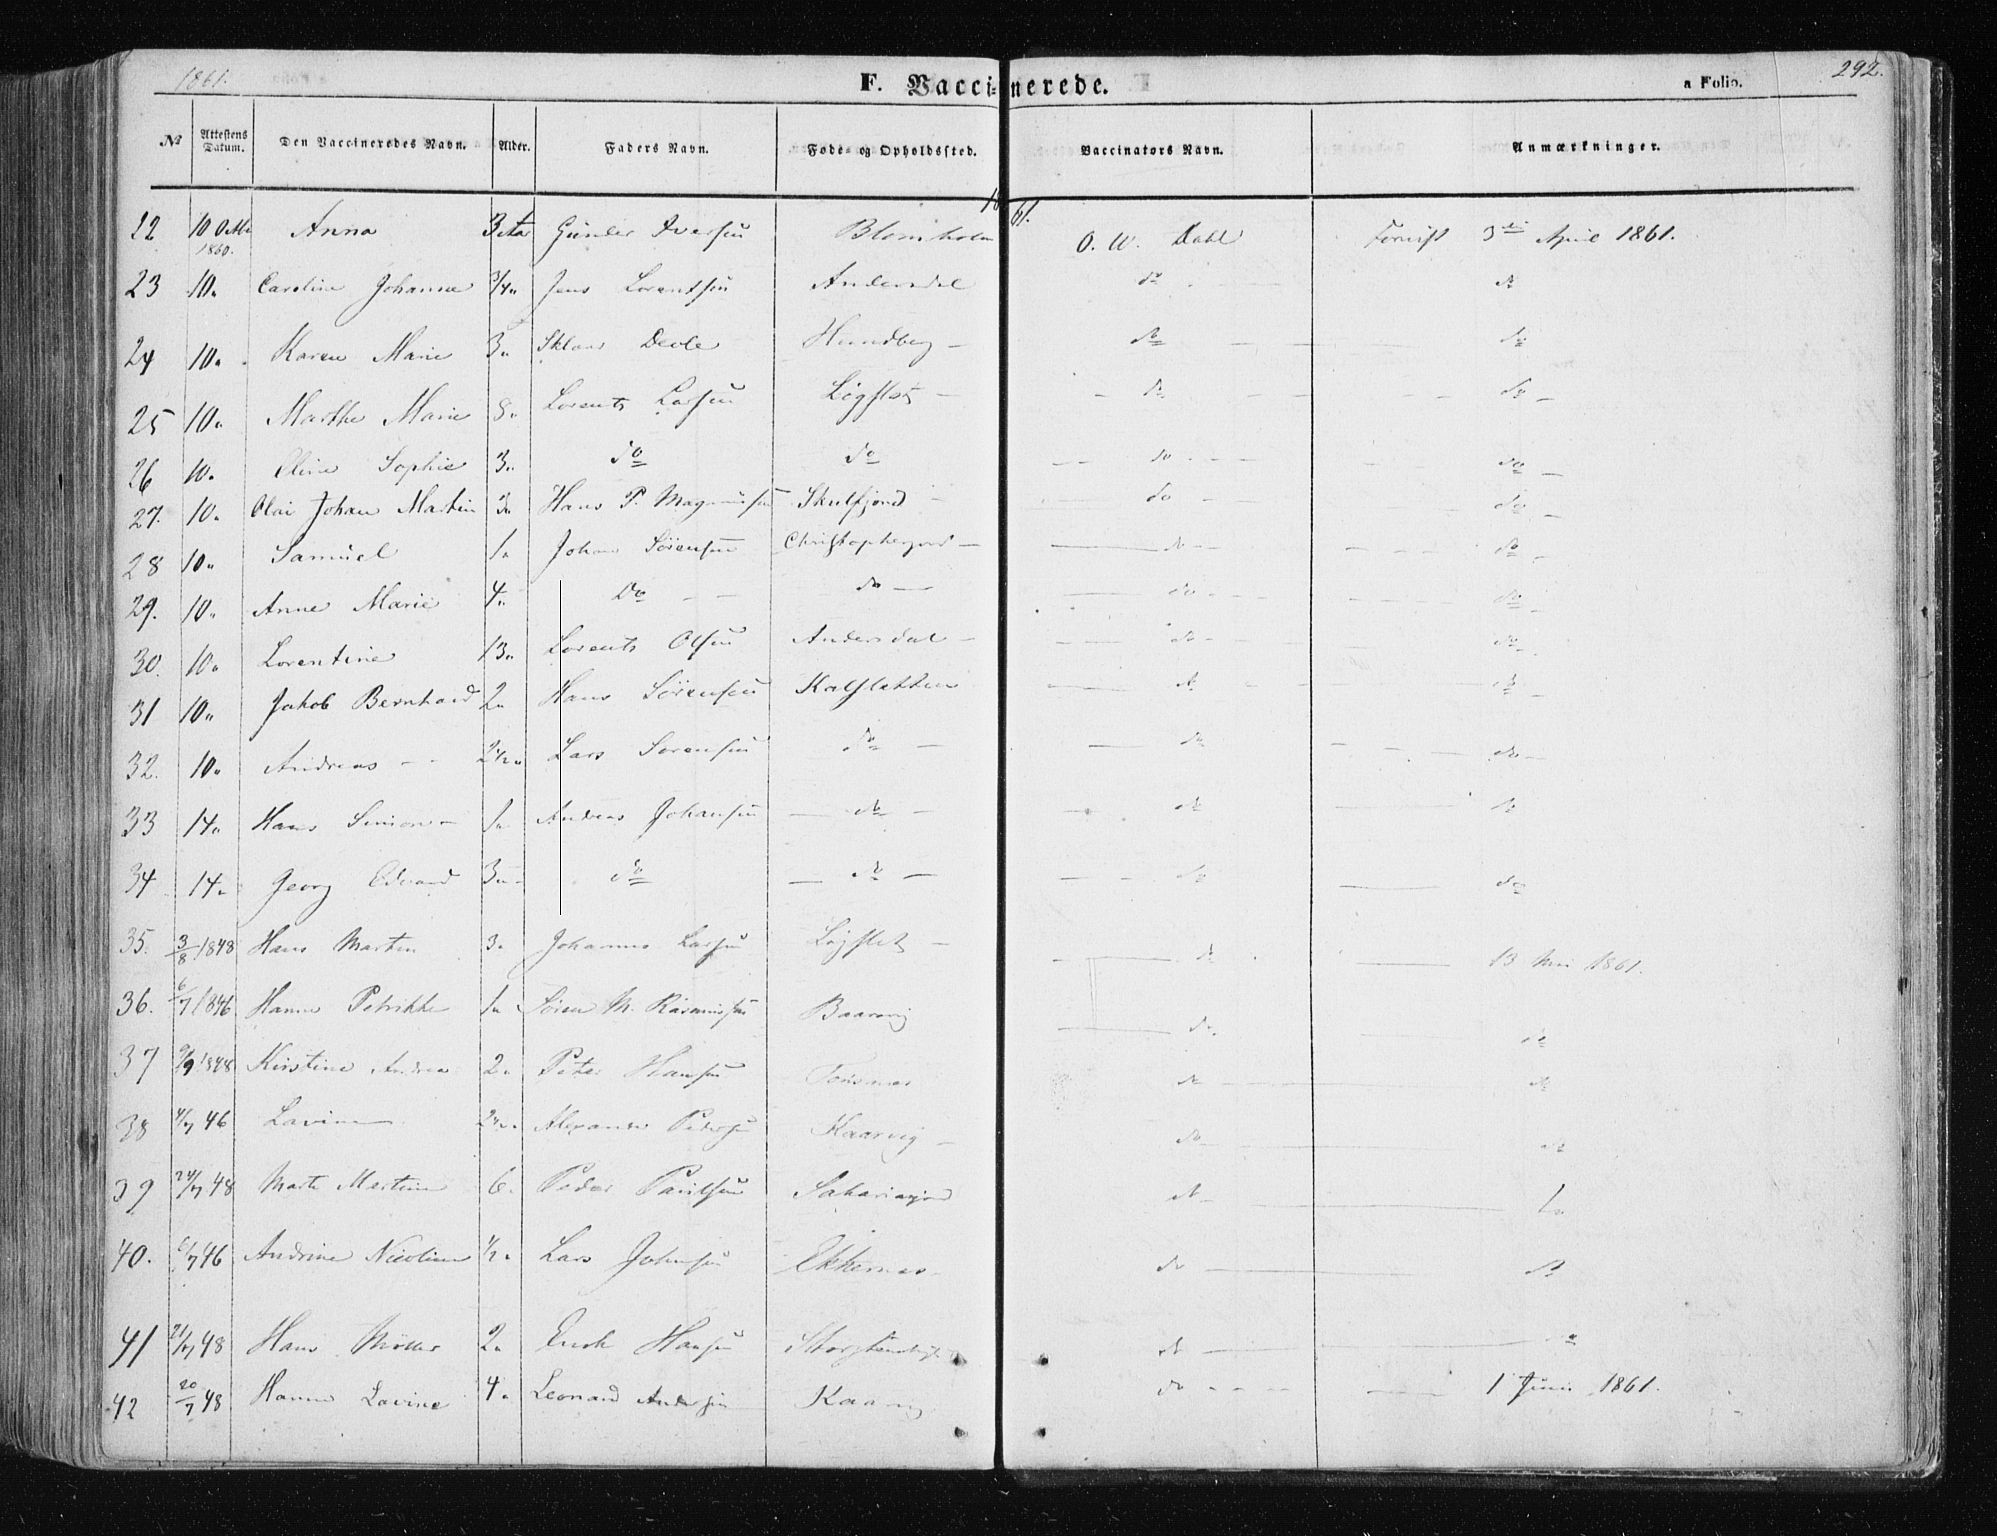 1861. F. Vaccinerede. a Folio. 292.
№ Attestens Datum. Den Vaccineredes Navn. Alder. Faders Navn. Føde- og Opholdssted. Vaccinators Navn. Anmærkninger.
1861.
22 10 Octbr 1860. Anna 3 Aar Gunder Iversen Blomholm O. W. Dahl Forevist 3die April 1861.
23 10" Caroline Johanna 3/4" Jens Lorentsen Andersdal do do
24 10" Karen Marie 3" Hundberg do do
25 10" Marthe Marie 8" Lorents Larsen do do
26 10" Eline Sophie 3" do do do do
27. 10" Olai Johan Martin 3" Hans P. Magnussen Skulfjord do do
28 10" Samuel 1" Johan Sørensen do do
29. 10" Anne Marie 4" Do do do do
30. 10" Lorentine 13" Lorents Olsen Andersdal do do
31 10" Jakob Bernhard 2" Hans Sørensen Kalsletten do do
32. 10" Andreas 2 1/2" Lars Sørensen do do do
33 14" Hans Simon 1" Andreas Johansen do do do
34 14" Georg Edvard 3" do do do do
35. 3/8 1848 Hans Martin 3" Johannes Larsen do 13 Mai 1861.
36. 6/7 1846 Hanna Petrikke 1" Søren M. Rasmussen do do
37 9/9 1848 Kirstine Andrea 2" Peter Hansen do do
38 4/7 46 Lavine Alexander Pedersen Kaarvig do do
39 24/7 48 Marte Martine 6" Peder Paulsen do do
40. 6/7 46 Andrine Nicoline 1/2" Lars Johnsen do do
41 21/7 48 Hans Møller 2" Hansen do do
42 20/7 48 Hanna Lavine 4" Leonard Andersen do 1 Juni 1861.